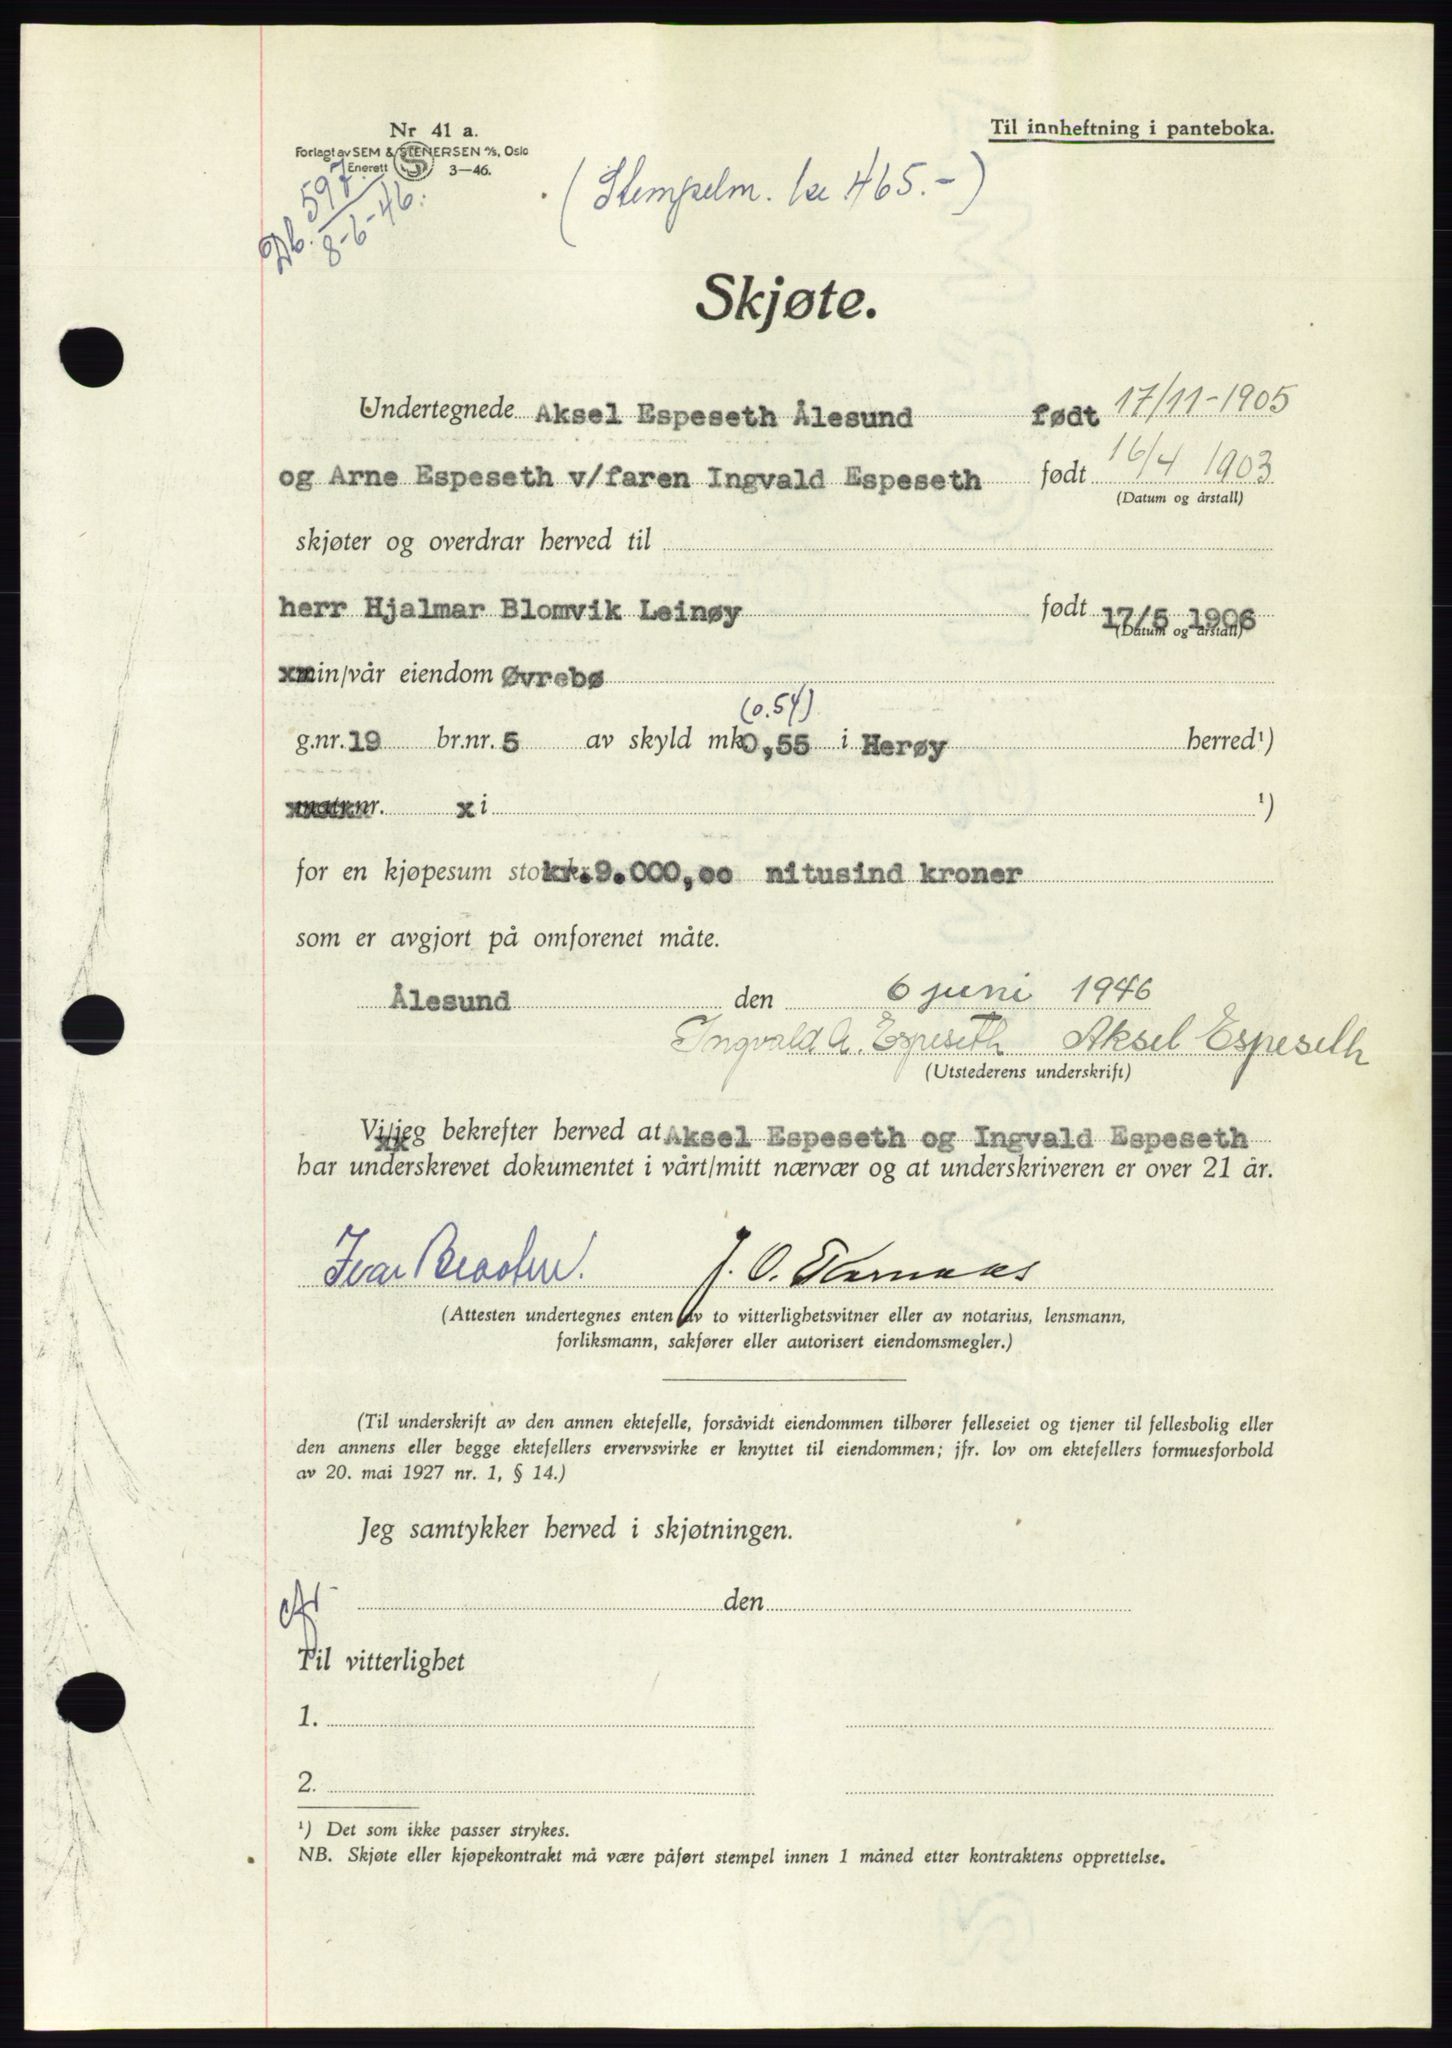 Nr 41 a.
Forlagt av SEM & STENERSEN A/S, Oslo
Enerett 3—46.
Til innheftning i panteboka.
Db. 597
8-6-46.
(Stempelm. kr 465.-)
Skjøte.
Undertegnede Aksel Espeseth Ålesund født 17/11-1905
og Arne Espeseth v/faren Ingvald Espeseth født 16/4 1903
(Datum og årstall)
skjøter og overdrar herved til
herr Hjalmar Blomvik Leinøy født 17/5 1906
(Datum og årstall)
min/vår eiendom Øvrebø
(0.54)
g.nr. 19 br.nr. 5 av skyld mk 0,55 i Herøy herred¹)
matr.nr. x i ¹)
for en kjøpesum stor kr. 9.000,oo nitusind kroner
som er avgjort på omforenet måte.
Ålesund den 6 juni 1946
Ingvald A. Espeseth Aksel Espeseth
(Utstederens underskrift)
Vi/jeg bekrefter herved at Aksel Espeseth og Ingvald Espeseth
har underskrevet dokumentet i vårt/mitt nærvær og at underskriveren er over 21 år.
Ivar J. O.
(Attesten undertegnes enten av to vitterlighetsvitner eller av notarius, lensmann,
forliksmann, sakfører eller autorisert eiendomsmegler.)
(Til underskrift av den annen ektefelle, forsåvidt eiendommen tilhører felleseiet og tjener til fellesbolig eller
den annens eller begge ektefellers ervervsvirke er knyttet til eiendommen; jfr. lov om ektefellers formuesforhold
av 20. mai 1927 nr. 1, § 14.)
Jeg samtykker herved i skjøtningen.
den
Til vitterlighet
1.
2.
¹) Det som ikke passer strykes.
NB. Skjøte eller kjøpekontrakt må være påført stempel innen 1 måned etter kontraktens opprettelse.